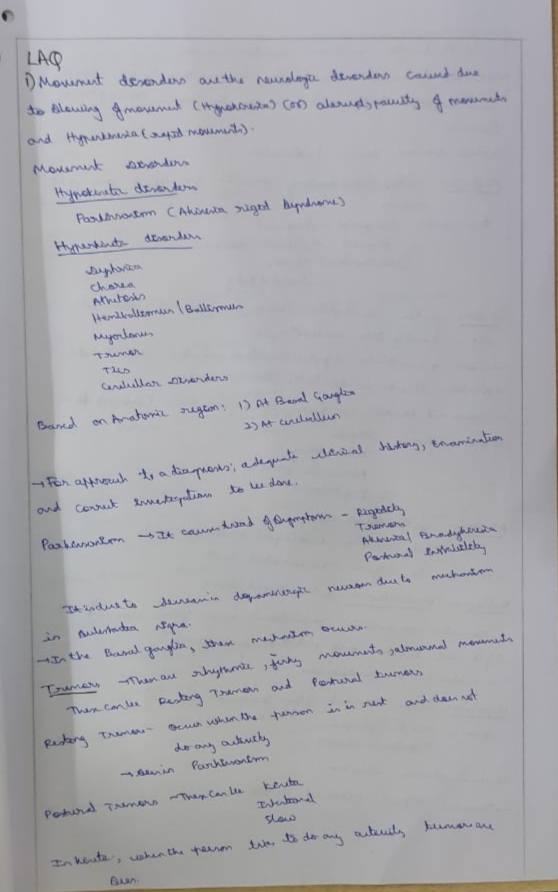 LAQ
1) Movement disorders are the neurologic disorders caused due
to slowing of movement (Hypokinesia) (or) abrupt, of movements
and Hyperkinesia (rapid movements).
Movement Disorders
Hypokinetic disorders
Parkinsonism (Akinesia rigid syndrome)
Hyperkinetic disorders
Dystonia
Chorea
Athetosis
Hemiballismus / Ballismus
Myoclonus
Tremor
Tics
Cerebellar Disorders
Based on Anatomic region: 1) At Basal Ganglia
2) At cerebellum
→ For approach to a diagnosis, adequate clinical history, examination
and correct investigations to be done.
Parkinsonism → It causes triad of symptoms - Rigidity
Tremors
Akinesia/ Bradykinesia
Postural instability
It is due to decrease in dopaminergic neuron due to mechanism
in substantia nigra.
→ In the Basal ganglia, these mechanism occurs.
Tremors → These are rhythmic, jerky movements, abnormal movements
There can be Resting Tremors and Postural tremors
Resting Tremors - occur when the person is in rest and does not
do any activity
→ Seen in Parkinsonism
Postural Tremors → There can be
Intentional
Slow
In , when the person tries to do any activity, tremors are
seen.